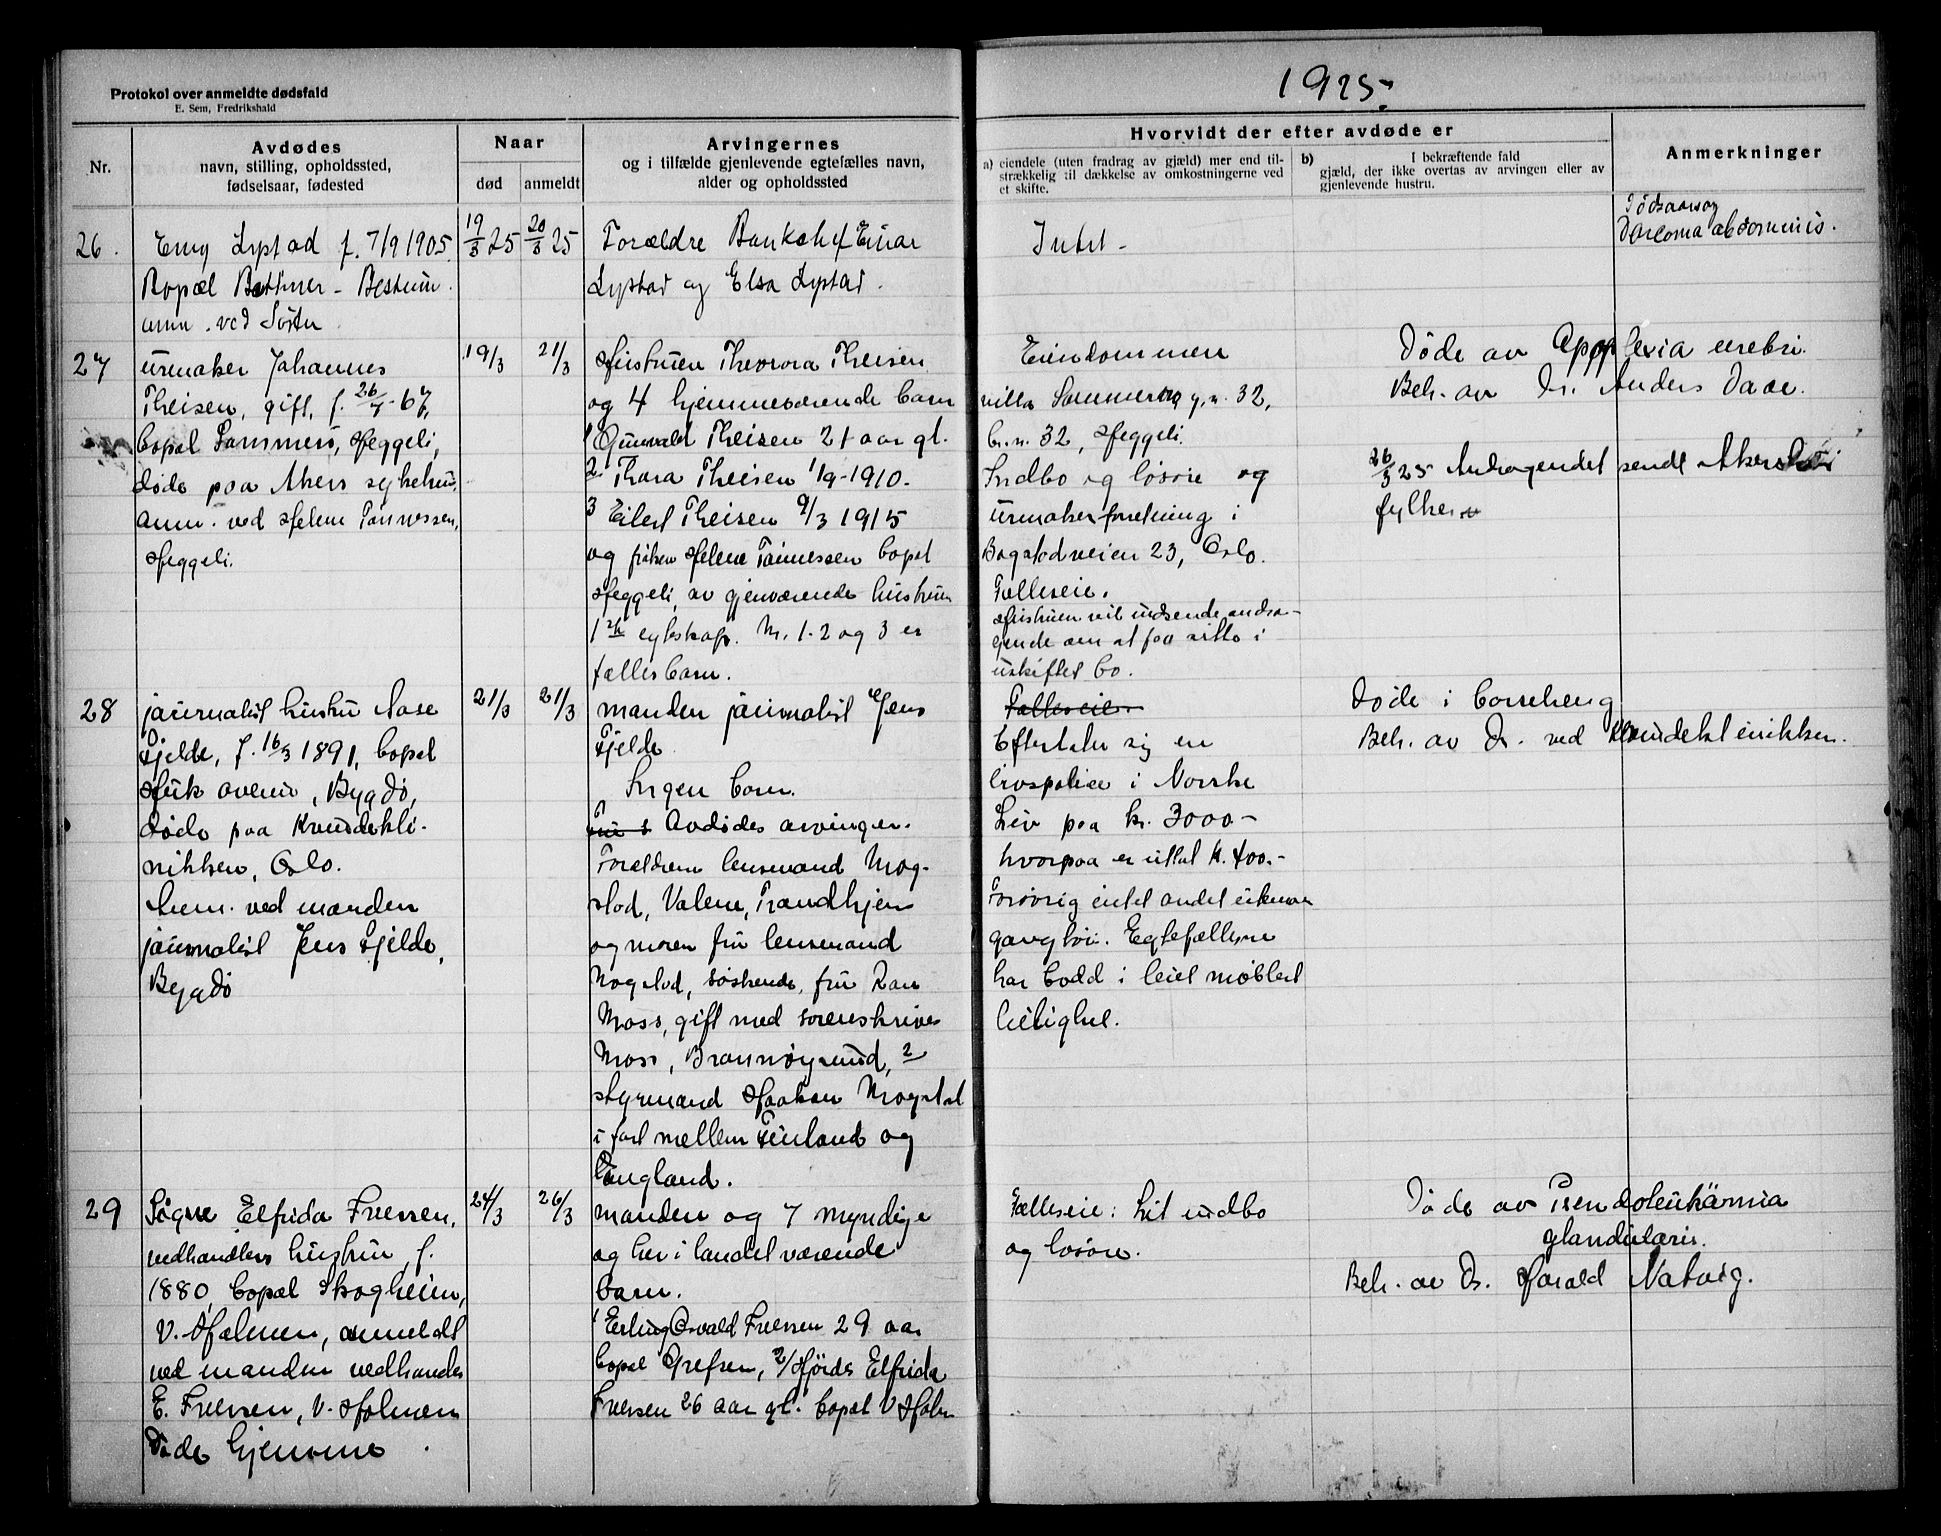 Protokol over anmeldte dødsfald
E. Sem, Fredrikshald
1925.
Nr.
Avdødes
navn, stilling, opholdssted,
fødselsaar, fødested
Naar
død
anmeldt
Arvingernes
og i tilfælde gjenlevende egtefælles navn,
alder og opholdssted
Hvorvidt der efter avdøde er
a) eiendele (uten fradrag av gjæld) mer end til-
strækkelig til dækkelse av omkostningerne ved
et skifte.
b) I bekræftende fald
gjæld, der ikke overtas av arvingen eller av
gjenlevende hustru.
Anmerkninger
26.
Emy Lystad f. 7/9 1905.
Bopæl - Bestum.
anm. ved Søster
19/3 25
20/3 25
Forældre Bankchef Einar
Lystad og Elsa Lystad.
Intet -
Dödsaarsag
Sarcoma abdominis.
27
urmaker Johannes
Theisen, gift, f. 26/7-67,
bopæl Sommero, Heggeli,
døde paa Akers sykehus,
anm. ved Helene Tønnessen,
Heggeli.
19/3
21/3
Hustruen Theodora Theisen
og 4 hjemmeværende barn
1 Gunvald Theisen 21 aar gl.
2. Thora Theisen 1/9-1910.
3 Eilert Theisen 9/3 1915
og frøken Helene Tønnessen bopæl
Heggeli, av gjenværende hustrues
1ste egteskap. Nr. 1-2 og 3 er
fællesbarn.
Eiendommen
villa Sommerro g.n. 32,
br.n. 32, Heggeli.
Indbo og løsøre og
urmakerforretning i
Bogstadveien 23, Oslo.
Fælleseie.
Hustruen vil indsende andra-
gende om at faa sitte i
uskiftet bo.
Døde av Apoplexia cerebri.
Beh. av Dr. Anders Daae.
26/3 25 Andragendet sendt Akershus
fylke
28
journalist hustru Aase
Fjelde, f. 16/3 1891, bopæl
Huk aveny, Bygdø,
døde paa Kvindekli-
nikken, Oslo.
Anm. ved manden
journalist Jens Fjelde,
Bygdø
21/3
21/3
manden journalist Jens
Fjelde.
Ingen barn.
Avdødes arvinger.
Forældrene lensmand Mog-
stad, Trondhjem
og moren fru lensmand
Mogstad, søskende, fru
Moss, gift med sorenskriver
Moss, Brønnøysund, 2
styrmand Haakon Mogstad
i fart mellem Finland og
England.
Fælleseie
Efterlater sig en
livspolice i Norske
Liv paa kr. 3000-
hvorpaa er uttat kr. 400.-
Forøvrig intet andet end
gangtøi. Egtefællerne
har bodd i leiet møblert
leilighet.
Døde i barselseng
Beh. av Dr. ved Kvindeklinikken.
29
Signe Elfrida Iversen,
vedhandlers hustru, f.
1880, bopæl Skogheim,
V. Holmen, anmeldt
ved manden vedhandler
E. Iversen, V. Holmen
Døde hjemme.
24/3
26/3
manden og 7 myndige
og her i landet værende
barn.
1 Erling Osvald Iversen 29 aar
bopæl Grefsen, 2/ Hjørdis Elfrida
Iversen 26 aar gl. bopæl V Holm
Fælleseie: Lit indbo
og løsøre.
Døde av Pseudoleukämia
glandularis.
Beh. av Dr. Harald Natvig.